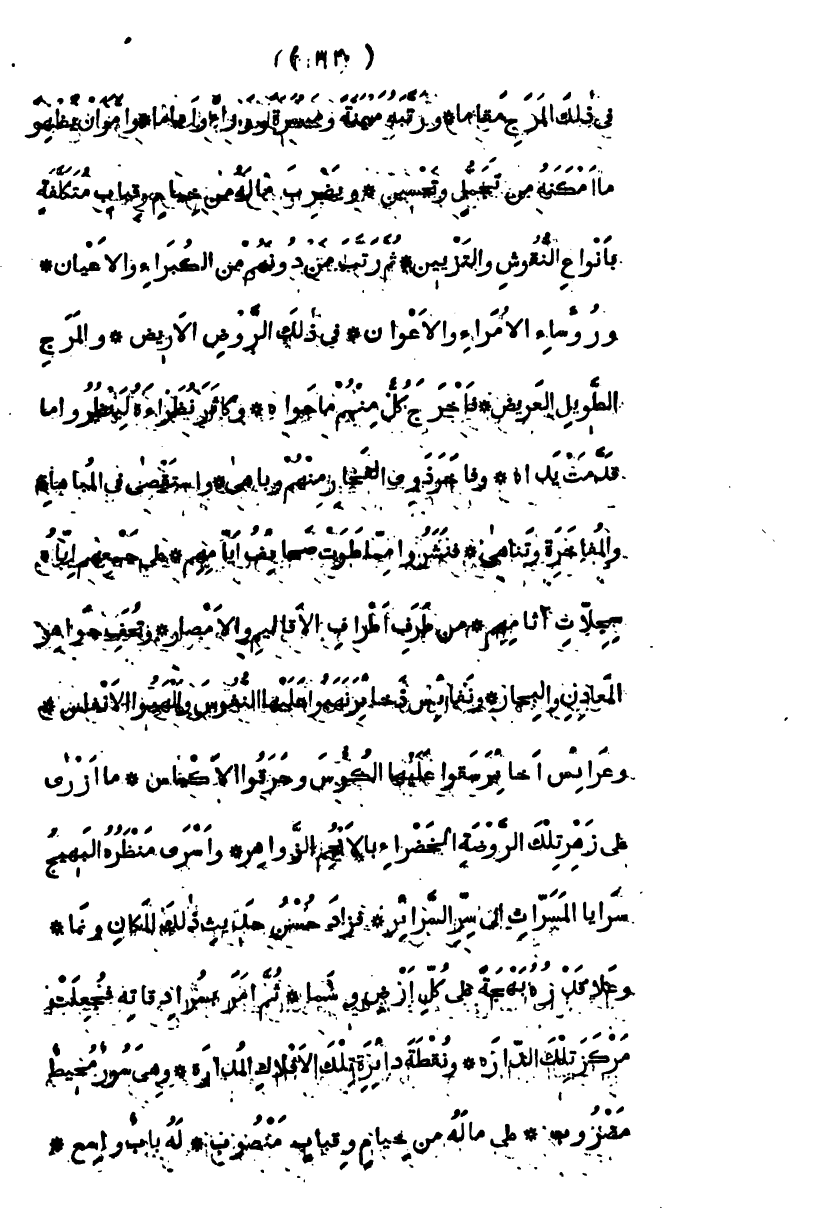 في ذٰلِكَ المَرْجِ مَقَاما * ورَتَّبَهُ مَيْمَنَةً ومَيْسَرَةً ووَراءً واَماما * وامَرَ اَنْ يُظْهِرَ
ما اَمْكَنَهُ مِن تَجَمُّلٍ وتَحْسِين * ويَضْرِبَ مالَهُ مِن خِيامٍ وقِبابٍ مُتَكَلَّفَةٍ
بِاَنْواعِ النُّقُوشِ والتَّزْيِين * ثُمَّ رَتَّبَ مَنْ دُونَهُمْ مِن الكُبَراءِ والاَعْيان *
ورُؤَساءِ الاُمَراءِ والاَعْوان * في ذٰلِكَ الرَّوْضِ الاَرِيض * والمَرْجِ
الطَّوِيلِ العَرِيض * فَاَخْرَجَ كُلٌّ مِنْهُمْ ما حَواه * وكاثَرَ نُظَراءَهُ لِيَنْظُرُوا ما
قَدَّمَتْ يَداه * وفاخَرَ ذَوِي الفَخارِ مِنْهُمْ وباهىٰ * واسْتَقْصىٰ في المُباهاةِ
والمُفاخَرَةِ وتَناهىٰ * فنَشَرُوا مِمّا طَوَتْ صَحايِفُ اَيّامِهِم * على جَمْعِهِم اِيّاهُ
سِجِلّاتِ آثامِهِم * مِن طُرَفِ اَطْرافِ الاَقالِيمِ والاَمْصار * وتُحَفِ جَواهِرِ
المَعادِنِ والبِحار * ونَفائِسِ ذَخائِرَ نَهَبُوا عَلَيْها النُّفُوسَ والْهَبُوا الاَنْفاس *
وعَرائِسِ اَخائِرَ سَقَوا عَلَيْها الكُؤُسَ وحَرَقُوا الاَكْياس * ما اَزْرىٰ
على زَهْرِ تِلْكَ الرَّوْضَةِ الخَضْراءِ بِالاَنْجُمِ الزَّواهِر * واَسْرَى مَنْظَرُهُ البَهِيجُ
سَرايا المَسَرّاتِ الى سِرِّ السَّرائِر * فزادَ حُسْنُ حَدِيثِ ذٰلِكَ المَكانِ ونَما *
وعَلا قَدْرُهُ بَهْجَةً على كُلِّ اَرْضٍ وسَما * ثُمَّ اَمَرَ بِسُرادِقاتِه فجُعِلَتْ
مَرْكَزَ تِلْكَ الدّارَه * ونُقْطَةَ دائِرَةِ تِلْكَ الاَفْلاكِ المُدارَه * وهِيَ سُورٌ مُحِيطٌ
مَضْرُوب * على مالَهُ مِن خِيامٍ وقِبابٍ مَنْصُوب * لَهُ بابٌ واسِع *